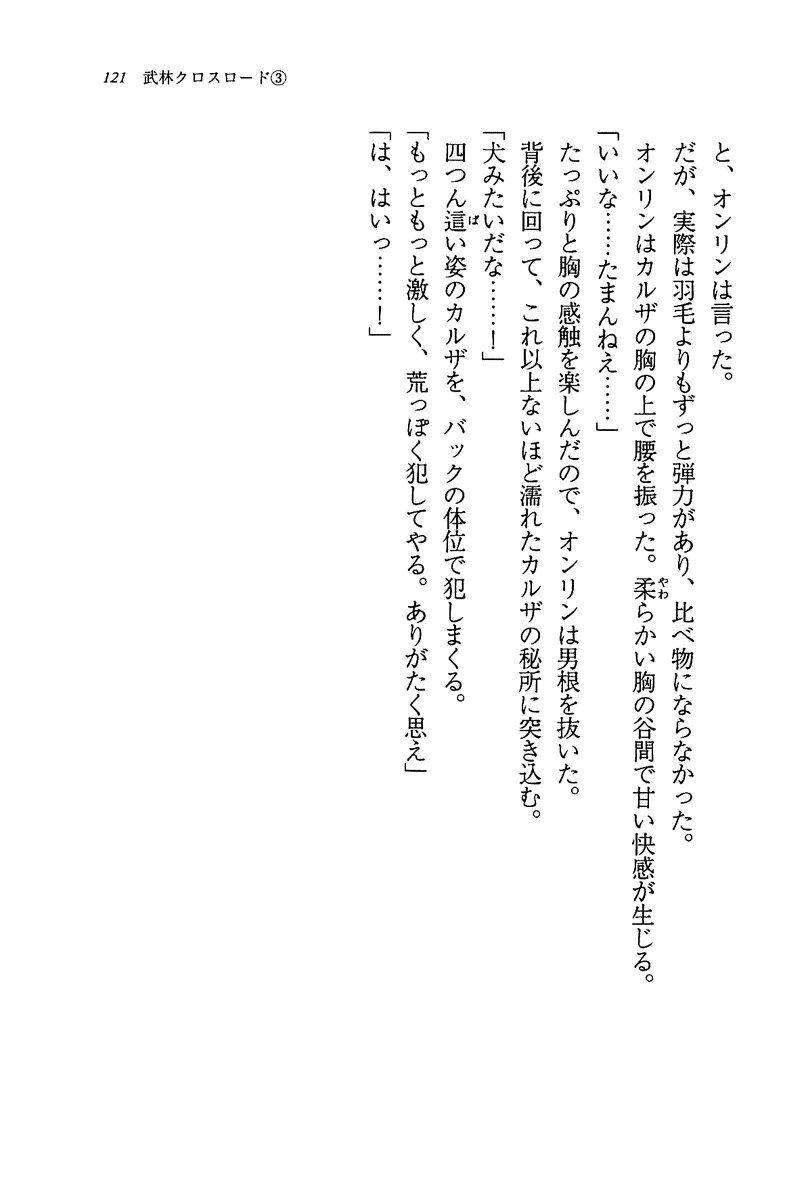 121 武林クロスロード③
と、オンリンは言った。
だが、実際は羽毛よりもずっと弾力があり、比べ物にならなかった。
オンリンはカルザの胸の上で腰を振った。柔らかい胸の谷間で甘い快感が生じる。
「いいな……たまんねえ……」
たっぷりと胸の感触を楽しんだので、オンリンは男根を抜いた。
背後に回って、これ以上ないほど濡れたカルザの秘所に突き込む。
「犬みたいだな……！」
四つん這い姿のカルザを、バックの体位で犯しまくる。
「もっともっと激しく、荒っぽく犯してやる。ありがたく思え」
「は、はいっ……！」